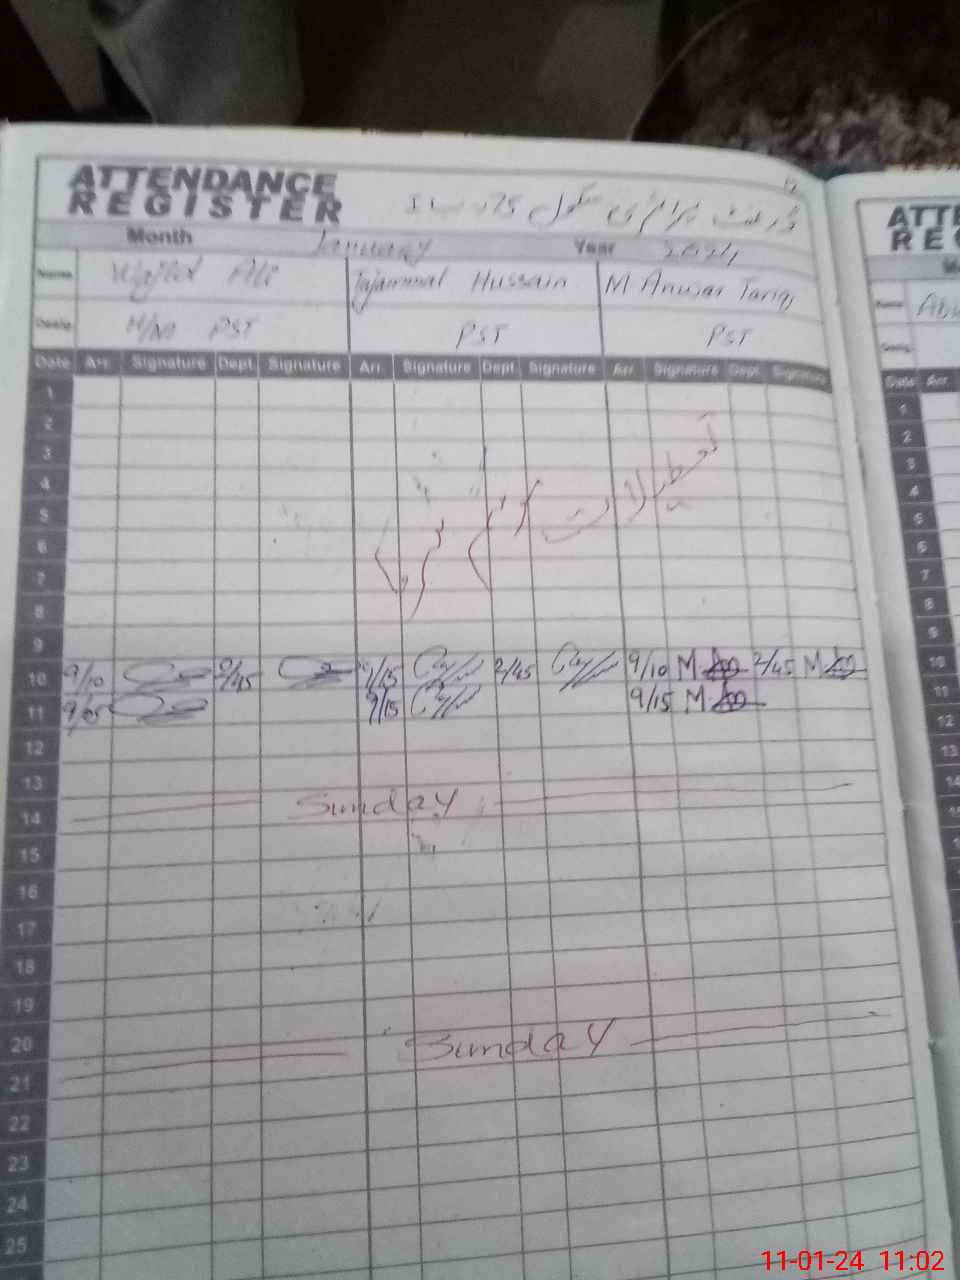 ATTENDANCE
REGISTER
گورنمنٹ پرائمری سکول 75 ر ب I
Month January Year 2024
Name Wajid Ali Tajammal Hussain M Anwar Tariq
Desig. H/M PST PST PST
Date Arr. Signature Dept. Signature Arr. Signature Dept. Signature Arr. Signature Dept. Signature
1
2
3
تعطیلات
4
5
6
7
8
9
10 9/10 2/45 9/15 2/45 9/10 2/45
11 9/05 9/15 9/15
12
13
Sunday
14
15
16
17
18
19
20 Sunday
21
22
23
24
25
ATTE
REG
Date Arr.
1
2
3
4
5
6
7
8
9
10
11
12
13
14
11-01-24 11:02